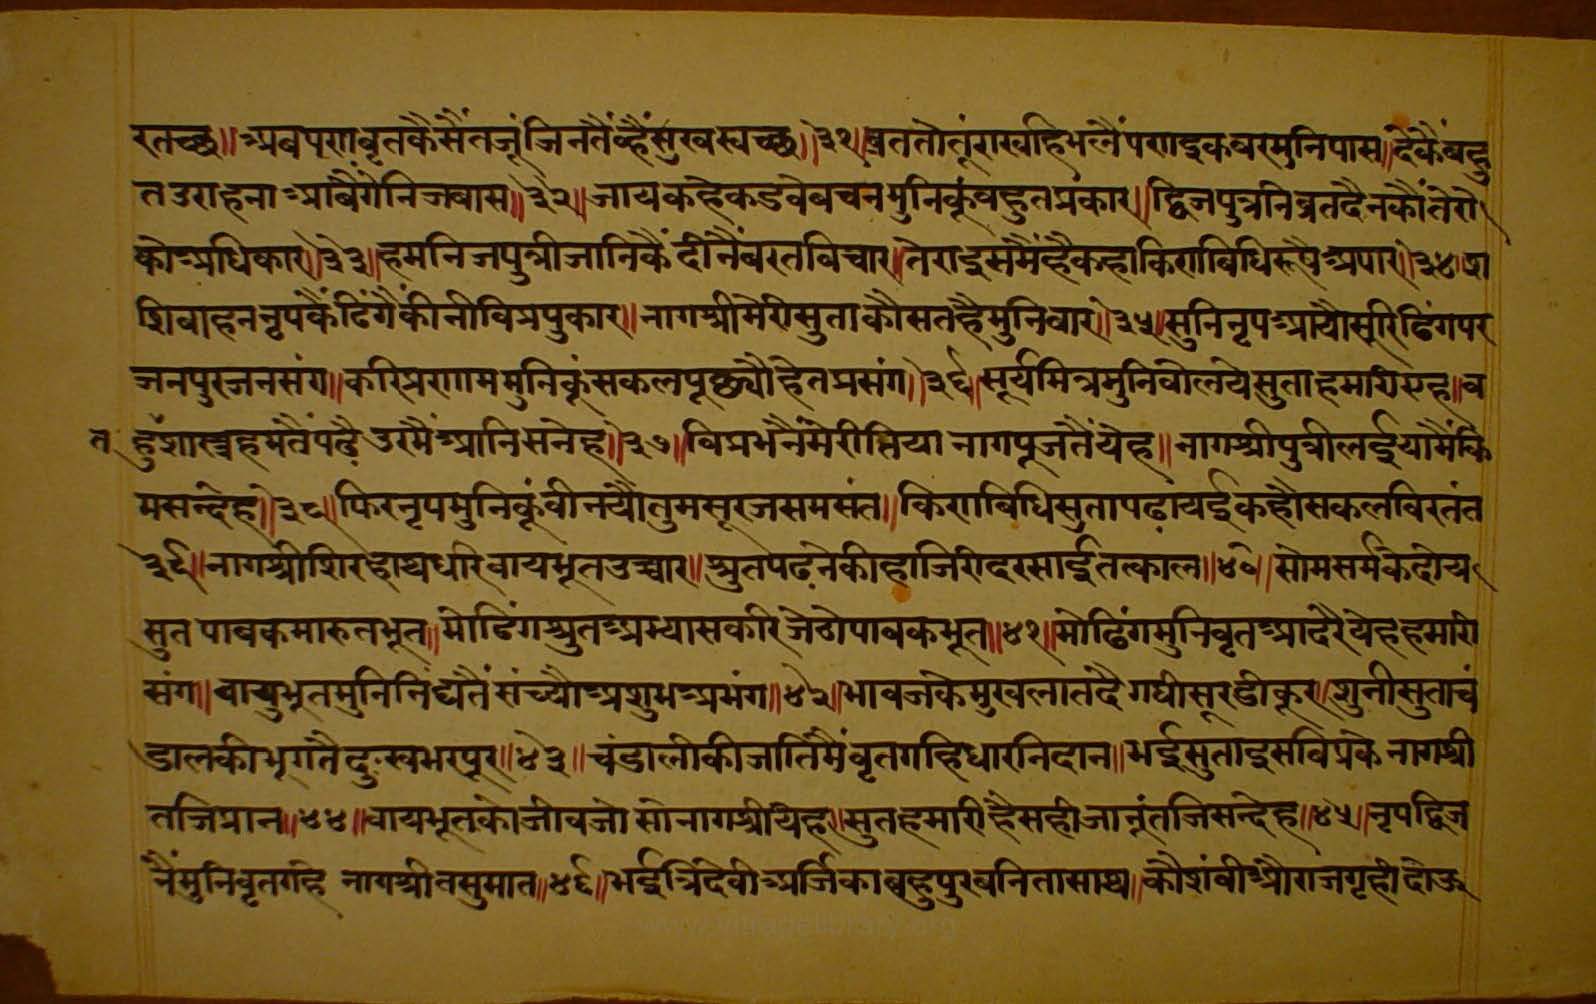 रतच्छ॥ अब पण वृत कैसैं तजूं जिनतैं व्हैं सुख स्वच्छ॥३१॥ व्रत तो तूं राखहि भलैं पण इक वर मुनि पास॥ देकैं बहु
त उराहना आवैंगे निज वास॥३२॥ जाय कहे कडवे बचन मुनिकूं बहुत प्रकार॥ द्विजपुत्रनि व्रत दैनकौं तेरो
को अधिकार॥३३॥ हम निज पुत्री जानिकैं दीनैं वरत विचार॥ तेरा इसमैं व्है कहा किण विधि रूपै अपार॥३४॥ श
शिवाहन नृपकैं ढिंगैं कीनी विप्र पुकार॥ नागश्री मेरी सुता कौस तहै मुनि वार॥३५॥ सुनि नृप आयौ सूरि ढिंग पर
जन पुरजन संग॥ करि प्रणाम मुनिकूं सकल पूछ्यौ हेत प्रसंग॥३६॥ सूर्यमित्र मुनि बोलये सुता हमारी एह॥ व
त हुँ शास्त्र हमतैं पढै उरमैं आनि सनेह॥३७॥ विप्र भनैं मेरी त्रिया नाग पूजतैं येह॥ नागश्री पुत्री लई यामैं कि
म सन्देह॥३८॥ फिर नृप मुनिकूं वीनयौ तुम सूरज सम संत॥ किण विधि सुता पढायई कहौ सकल विरतंत
३९॥ नागश्री शिर हाथ धरि वायभूत उच्चार॥ श्रुत पढनेकी हाजिरी दरसाई तत्काल॥४०॥ सोमसर्मके दोय
सुत पावक मारुतभूत॥ मो ढिंग श्रुत अभ्यास करि जेठो पावकभूत॥४१॥ मो ढिंग मुनिवृत आदरै येह हमारी
संग॥ वायुभूत मुनि निंद्यतैं संच्यौ अशुभ अभंग॥४२॥ भावजके मुख लात दै गधी सूरडी कूर॥ शुनी सुता चं
डालकी भुगतै दुःख भरपूर॥४३॥ चंडालीकी जातिमैं वृत गहि धार निदान॥ भई सुता इस विप्रके नागश्री
तजि प्रान॥४४॥ वायभूतको जीव जो सो नागश्री येह॥ सुत हमारी है सही जानूं तजि सन्देह॥४५॥ नृप द्विज
नैं मुनिवृत गहे नागश्री वसु मात॥४६॥ भई त्रिदेवी अर्जिका बहु पुर वनिता साथ॥ कौशंबी और राजगृही दोऊ